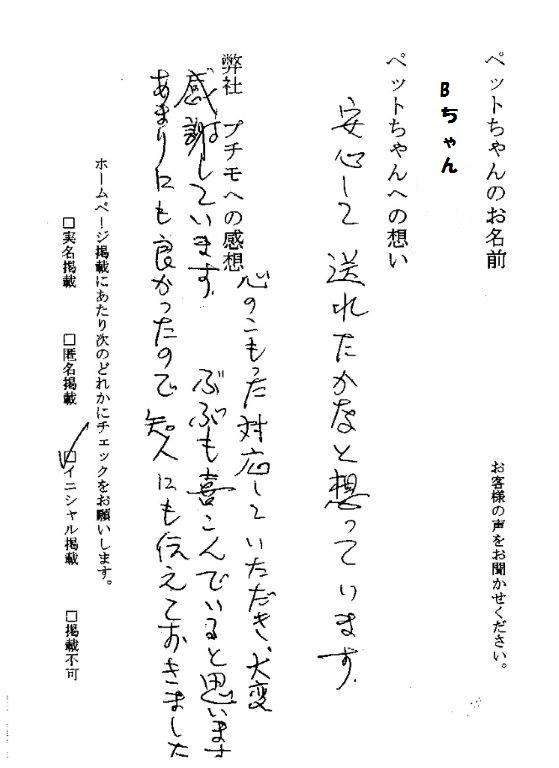 お客様の声をお聞かせください。
ペットちゃんのお名前
Bちゃん
ペットちゃんへの想い
安心して送れたかなと想っています。
弊社 プチモへの感想
心のこもった対応していただき、大変
感謝しています。 ぶぶも喜こんでいると思います
あまりにも良かったので知人にも伝えておきました
ホームページ掲載にあたり次のどれかにチェックをお願いします。
□実名掲載 □匿名掲載 ☑イニシャル掲載 □掲載不可